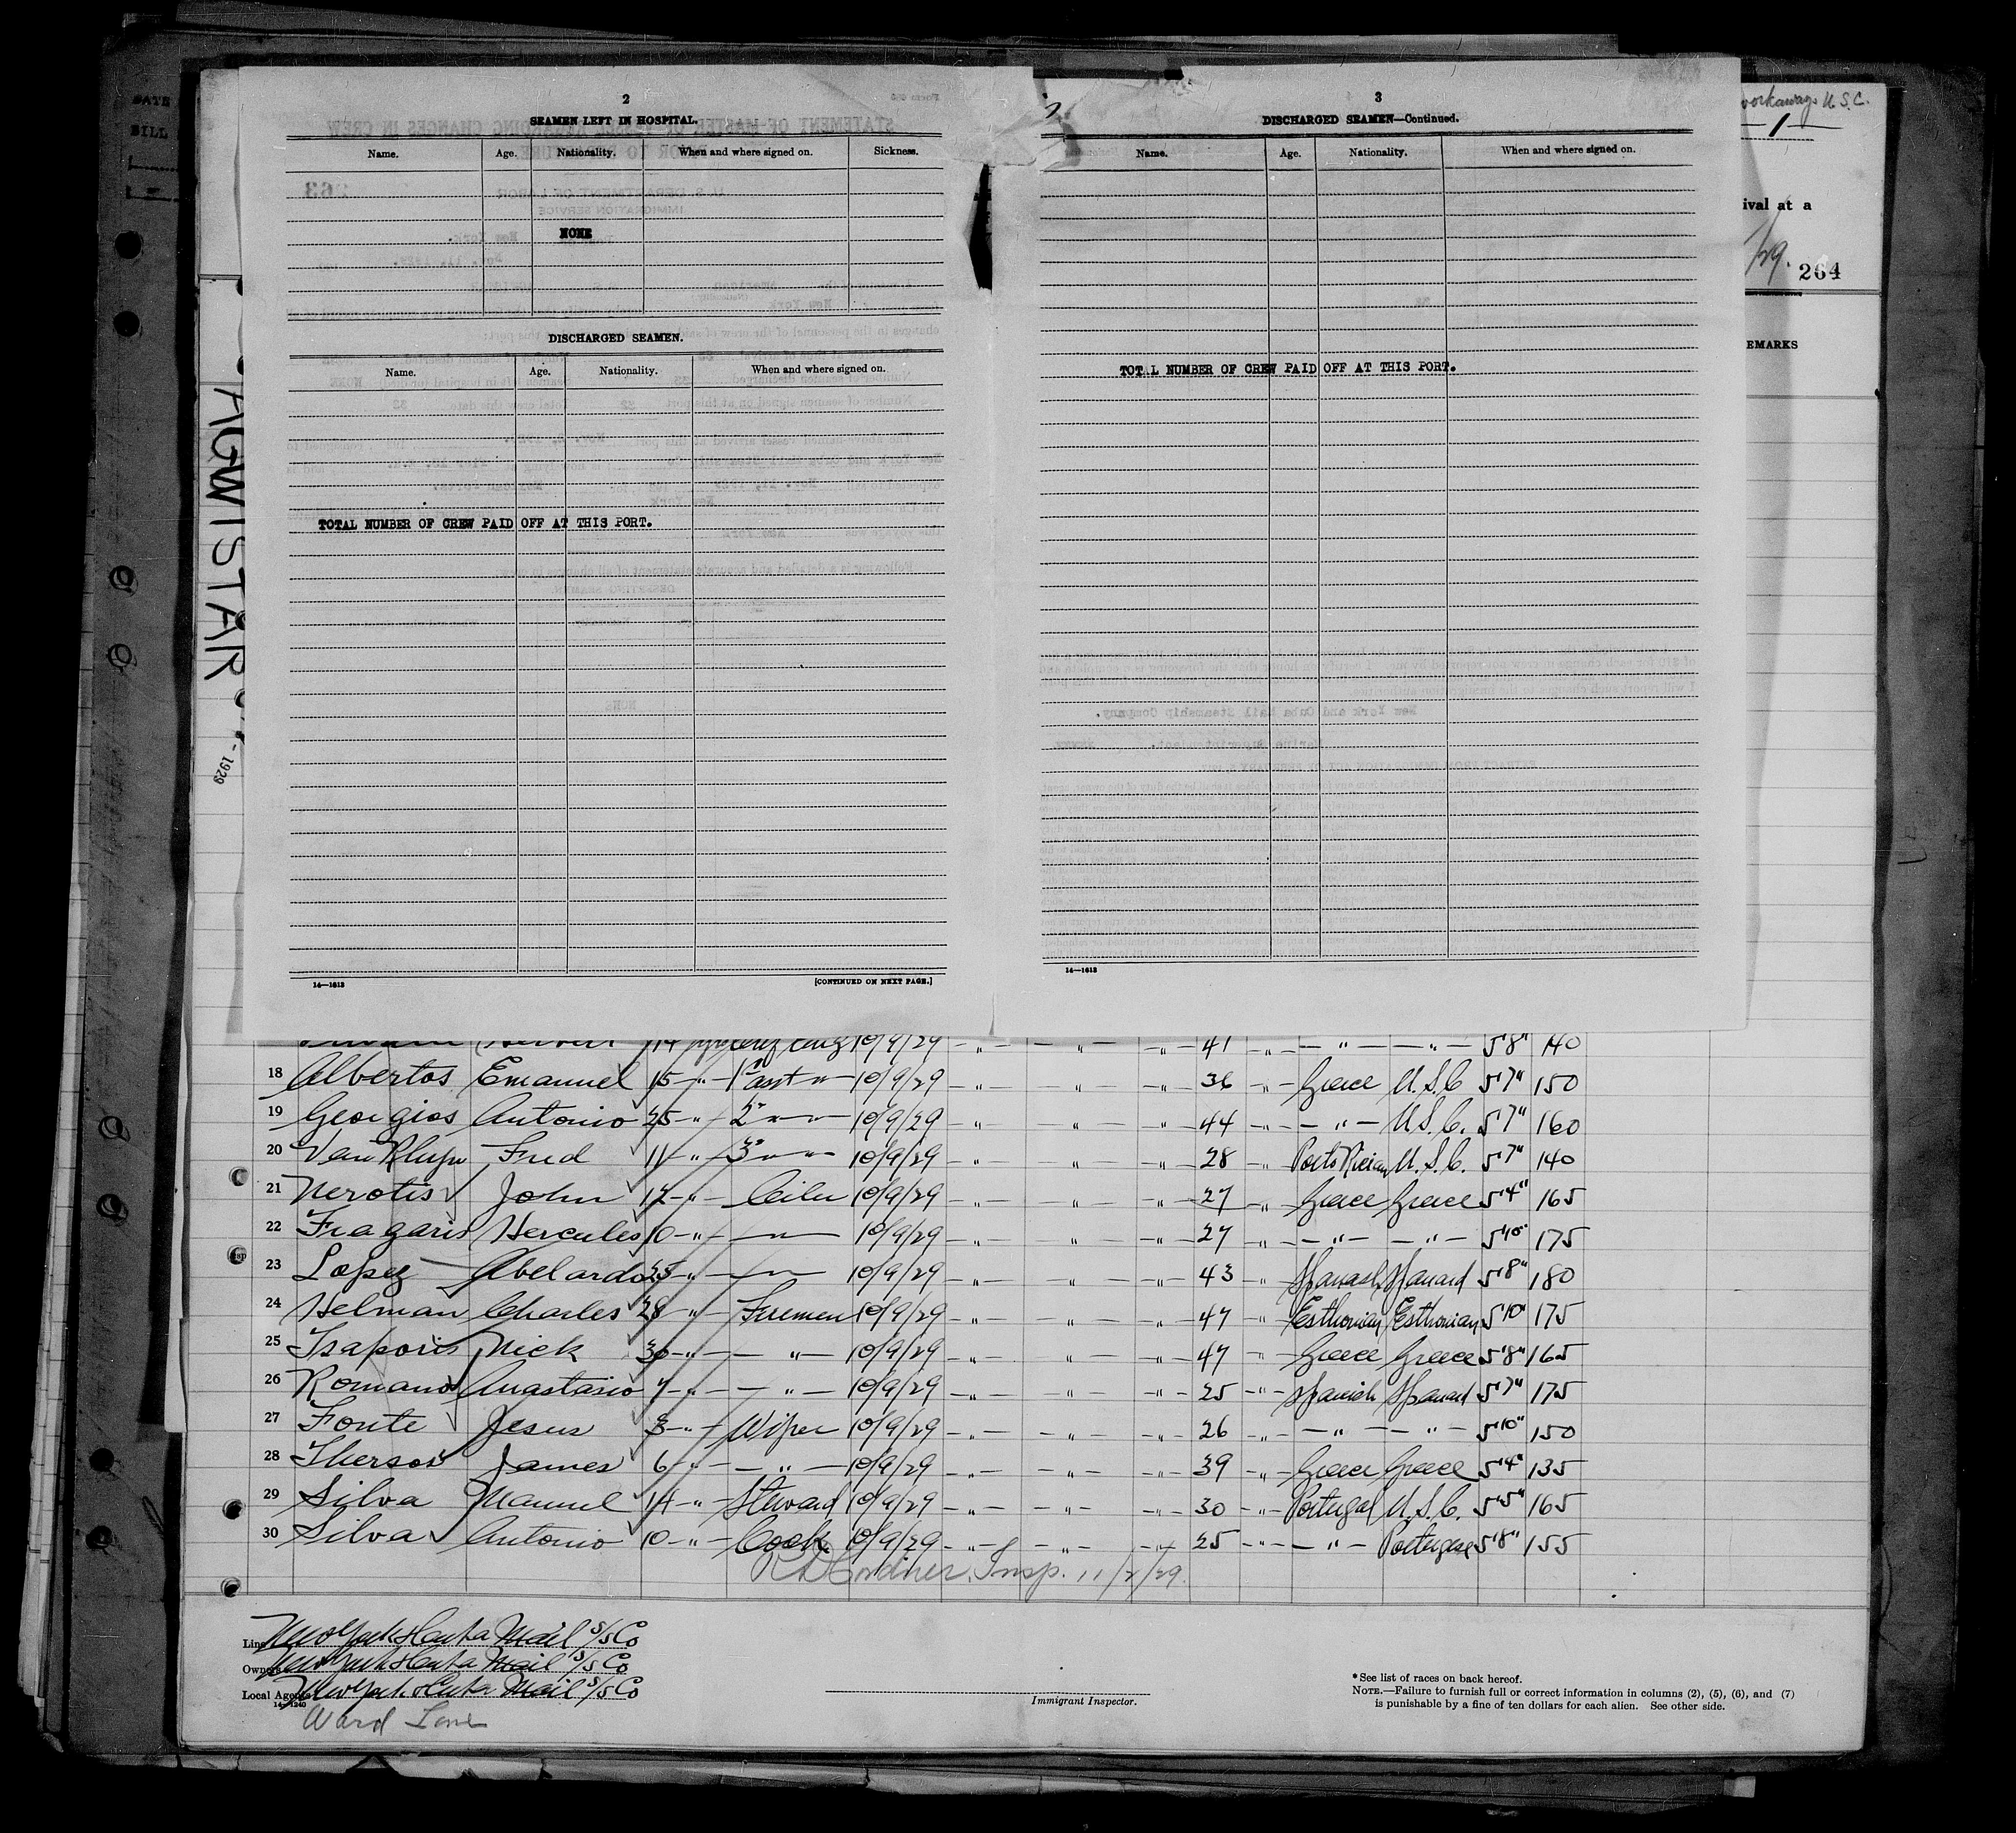 DATE
BILL
AGWISTAR
- 1929
2
SEAMEN LEFT IN HOSPITAL.
Name. Age. Nationality. When and where signed on. Sickness.
NONE
DISCHARGED SEAMEN.
Name. Age. Nationality. When and where signed on.
TOTAL NUMBER OF CREW PAID OFF AT THIS PORT.
14—1613 [CONTINUED ON NEXT PAGE.]
3
DISCHARGED SEAMEN—Continued.
Name. Age. Nationality. When and where signed on.
TOTAL NUMBER OF CREW PAID OFF AT THIS PORT.
14—1613
workaways U.S.C.
—1—
ival at a
/29. 264
EMARKS
10/9/29 — " — — " — — " — 41 — " — — " — — " — 5'8" 140
18 Albertos Emanuel 15 — " — 1st asst " — 10/9/29 — " — " — " — 36 — " — Greece U.S.C. 5'7" 150
19 Georgios Antonio 25 — " — 2" — " — 10/9/29 — " — " — " — 44 — " — — " — U.S.C. 5'7" 160
20 Fred 11 — " — 3" — " — 10/9/29 — " — " — " — 28 — " — Porto Rican U.S.C. 5'7" 140
21 Nerotis John 12 — " — Oiler 10/9/29 — " — " — " — 27 — " — Greece Greece 5'4" 165
22 Fragaris Hercules 10 — " — — " — 10/9/29 — " — " — " — 27 — " — — " — — " — 5'10" 175
23 Lopez Abelardo 25 — " — — " — 10/9/29 — " — " — " — 43 — " — Spanash Spanard 5'8" 180
24 Helman Charles 28 — " — Firemen 10/9/29 — " — " — " — 47 — " — Esthonian Esthonian 5'10" 175
25 Tsaporis Nick 30 — " — — " — 10/9/29 — " — " — " — 47 — " — Greece Greece 5'8" 165
26 Romanos Anastasio 7 — " — — " — 10/9/29 — " — " — " — 25 — " — Spanish Spanard 5'7" 175
27 Foute Jesus 3 — " — Wiper 10/9/29 — " — " — " — 26 — " — — " — — " — 5'10" 150
28 Thersos James 6 — " — — " — 10/9/29 — " — " — " — 39 — " — Greece Greece 5'4" 135
29 Silva Manuel 14 — " — Steward 10/9/29 — " — " — " — 30 — " — Portugal U.S.C. 5'5" 165
30 Silva Antonio 10 — " — Cook 10/9/29 — " — " — " — 25 — " — — " — Portugese 5'8" 155
Insp. 11/2/29.
Line New York & Cuba Mail S/S Co
Owners New York & Cuba Mail S/S Co
Local Agents New York & Cuba Mail S/S Co
14—1240
Ward Line
Immigrant Inspector.
* See list of races on back hereof.
NOTE.—Failure to furnish full or correct information in columns (2), (5), (6), and (7)
is punishable by a fine of ten dollars for each alien. See other side.